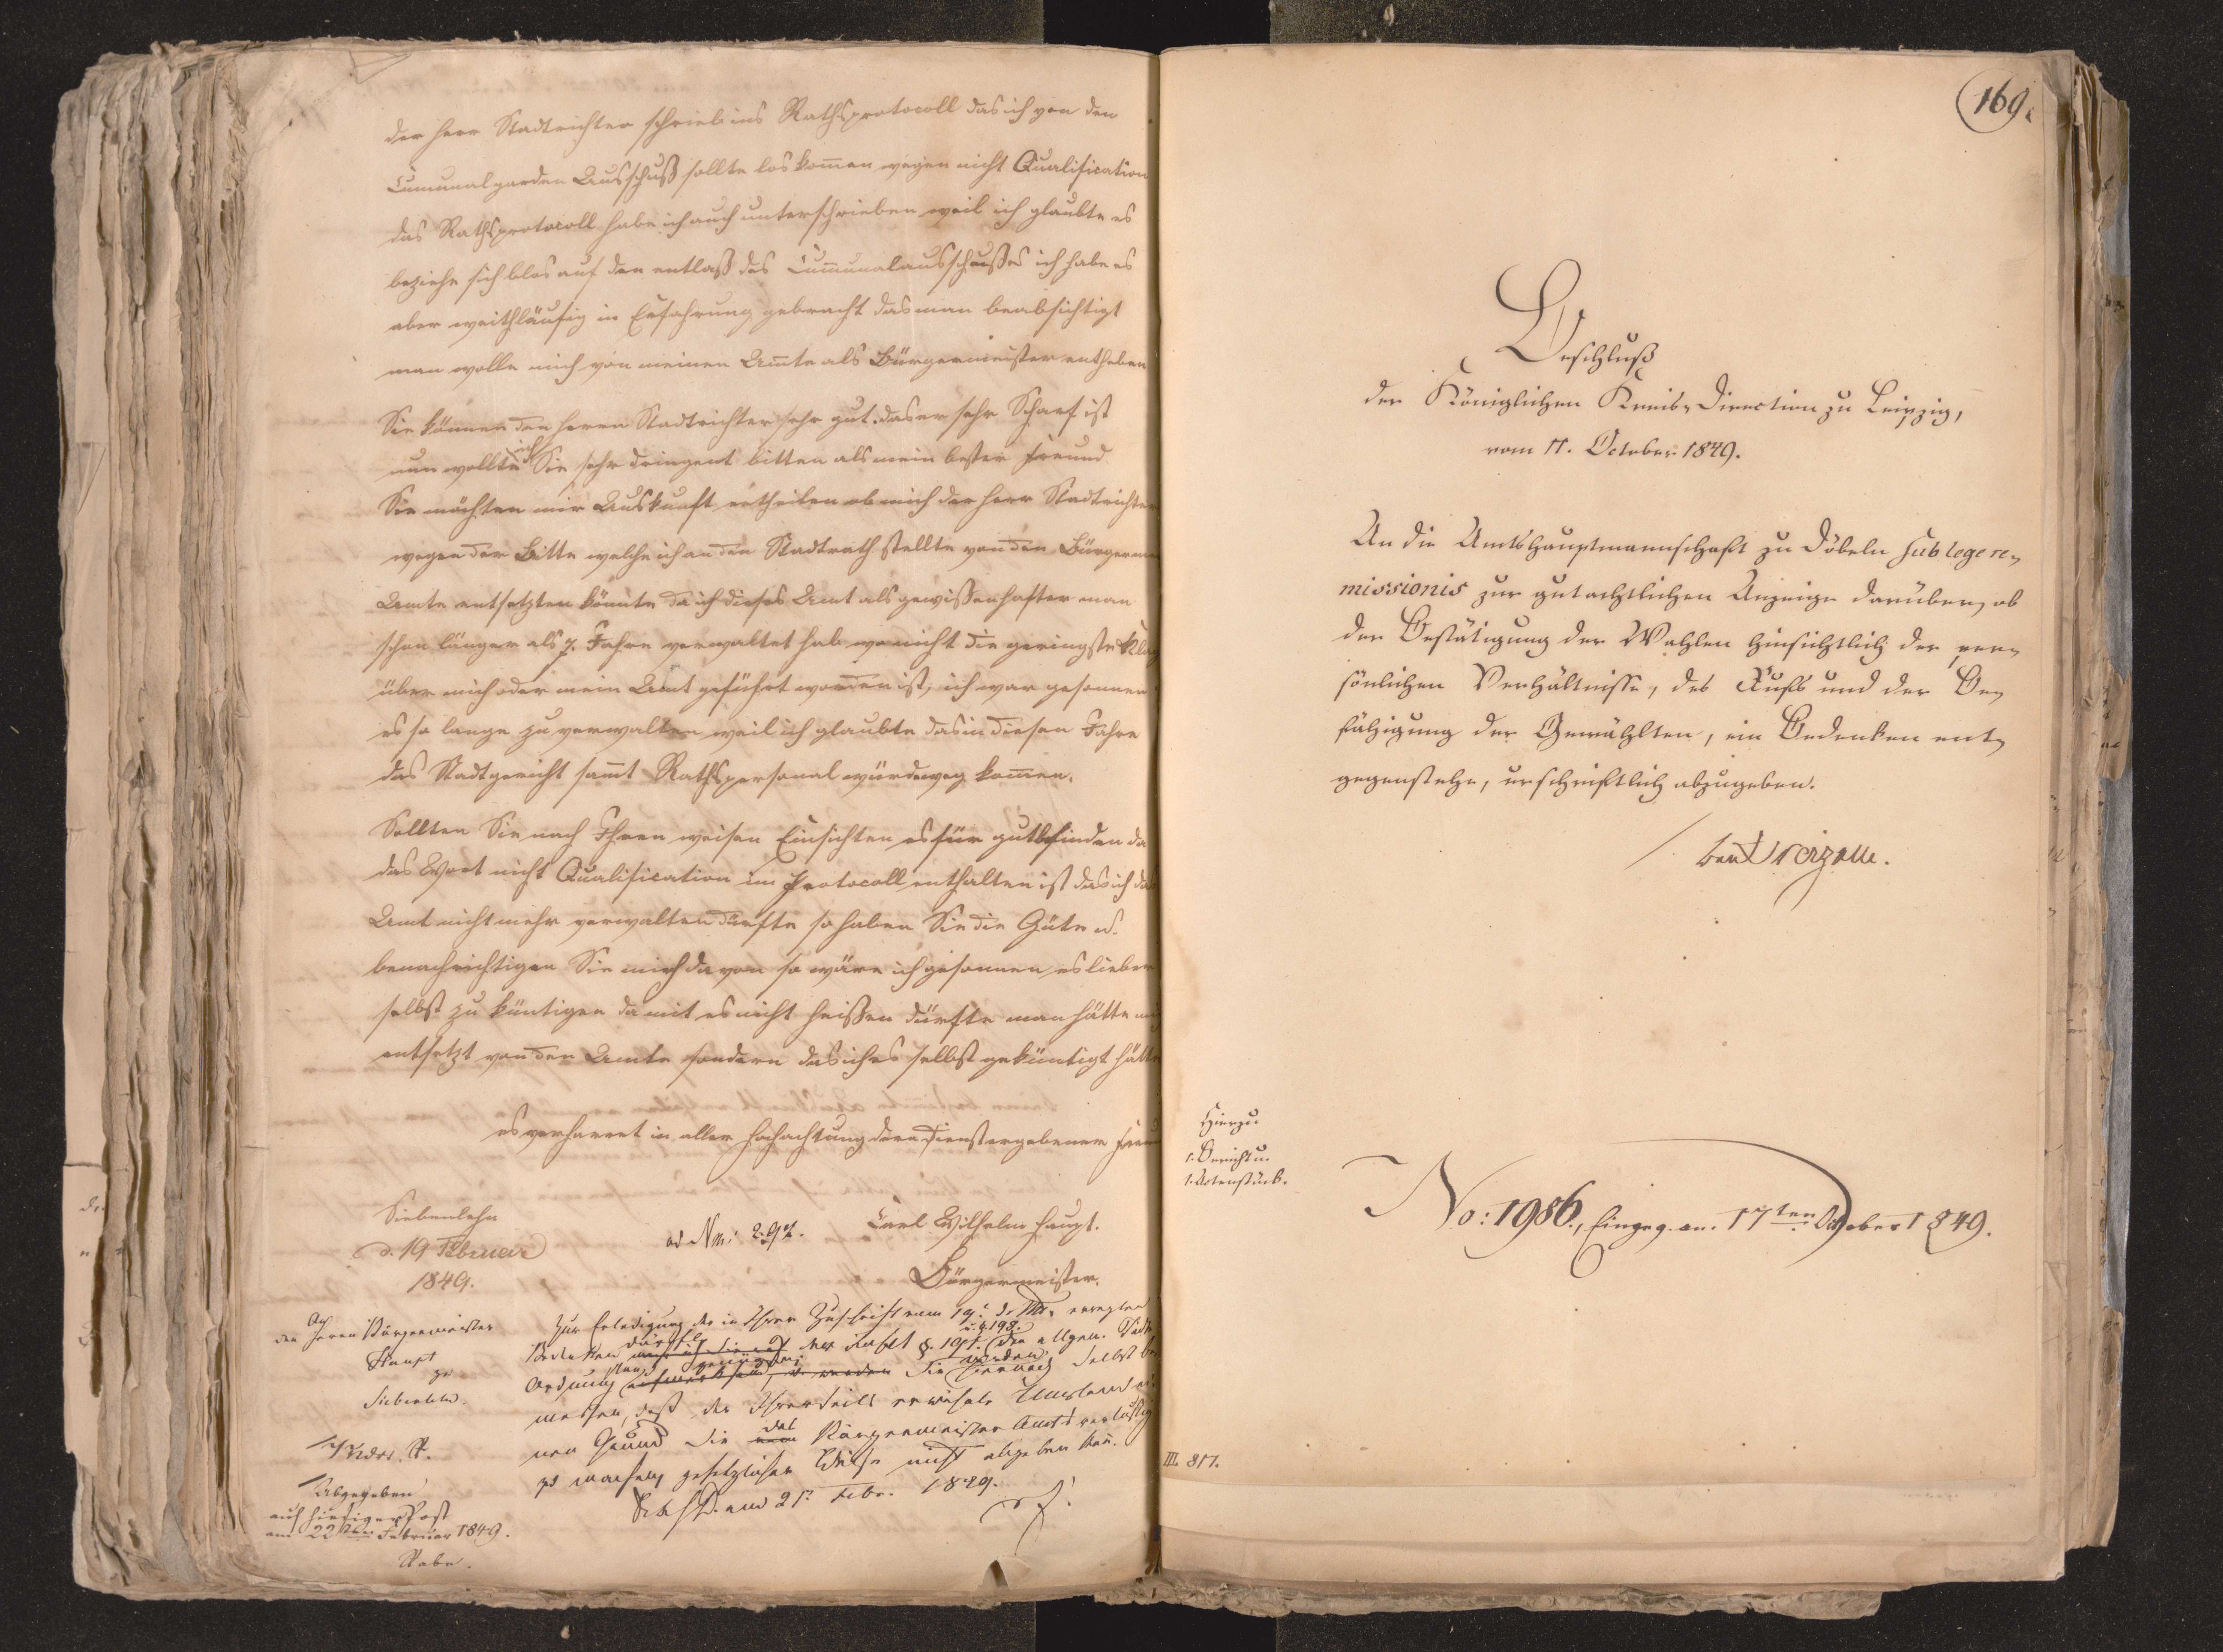 der Herr Stadtrichter schrieb ins Rathsprotocoll das ich von den
Cummunalgarden Ausschuß sollte los kommen wegen nicht Qualification
das Rathsprotocoll habe ich auch unterschrieben weil ich glaubte es
beziehe sich blos auf den entlaß des Cummunalausschußes ich habe es
aber weithläufig in Erfahrung gebracht das man beabsichtigt
man wolle mich von meinen Amte als Bürgermeister entheben
Sie können den Herrn Stadtrichter sehr gut. das er sehr Scharf ist
nun wollte ich Sie sehr dringent bitten als mein bester Freund
Sie möchten mir Auskunft ertheilen ob mich der Herr Stadtrichter
wegen der Bitte welche ich an den Stadtrath stellte von den Bürgerme
Amte entsetzten könnte da ich dieses Amt als gewißenhafter man
schon länger als 7. Jahre verwaltet hab wo nicht die geringste Klag
über mich oder mein Amt geführt worden ist, ich war gesonnen
es so lange zu verwalten weil ich glaubte das in diesen Jahre
das Stadtgericht samt Rathspersonal würde weg komen.
Sollten Sie nach Ihren weisen Einsichten es für gut befinden da
das Wort nicht Qualification im Protocoll enthalten ist das ich das
Amt nicht mehr verwalten dürfte so haben Sie die Güte u.
benachrichtigen Sie mich davon so wäre ich gesonnen es lieber
selbst zu küntigen da mit es nicht heißen dürfte man hätte mi
entsetzt von den Amte sondern das ich es selbst geküntigt hätte
es verharret in aller Hochachtung dero Dienstergebener Freu
Siebenlehn
d. 19 Februar
1849.
ad No: 297.
Carl Wilhelm Haupt.
Bürgermeister.
An
den Herrn Bürgermeister
Haupt
zu
Siebenlehn.
Abgegeben
auf hiesiger Post
am 22ten Februar 1849.
Rabe.
Zur Erledigung der in Ihrer Zuschrift vom 19. d. Mts. erregten
Bedenken dürfte der Inhalt §. 197. u. §. 198. der allgem. Städte
Ordnung genügen; Sie werden hiernach selbst
messen, daß der Ihrerseits erwähnte Umstand
nen Grund Sie des Bürgermeister Amts verlustig
zu machen gesetzlicher Weise nicht abgeben kan.
am 21. Febr. 1849.
169.
Beschluß
der Königlichen Kreis-Direction zu Leipzig,
vom 11. October 1849.
An die Amtshauptmannschaft zu Döbeln sub lege re-
missionis zur gutachtlichen Anzeige darüber, ob
der Bestätigung der Wahlen hinsichtlich der per-
sönlichen Verhältnisse, des Rufs und der Be-
fähigung der Gewählten, ein Bedenken ent-
gegenstehe, urschriftlich abzugeben.
von Broizem.
Hierzu
1. Bericht u.
1. Actenstück.
No: 1986., Eingeg. am 17ten October 1849.
III. 817.